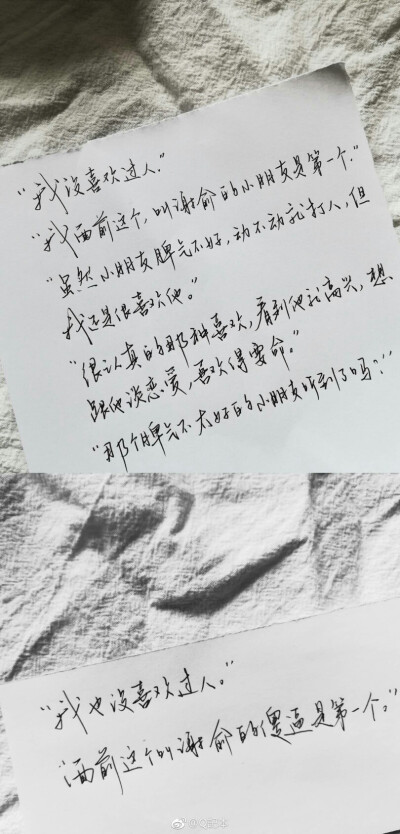 “我没喜欢过人。”
“我面前这个，叫谢俞的小朋友是第一个。”
“虽然小朋友脾气不好，动不动就打人，但
我还是很喜欢他。”
“很认真的那种喜欢，看到他就高兴，想
跟他谈恋爱，喜欢得要命。”
“那个脾气不太好的小朋友听到了吗？”
“我也没喜欢过人。”
“面前这个叫谢俞的傻逼是第一个。”